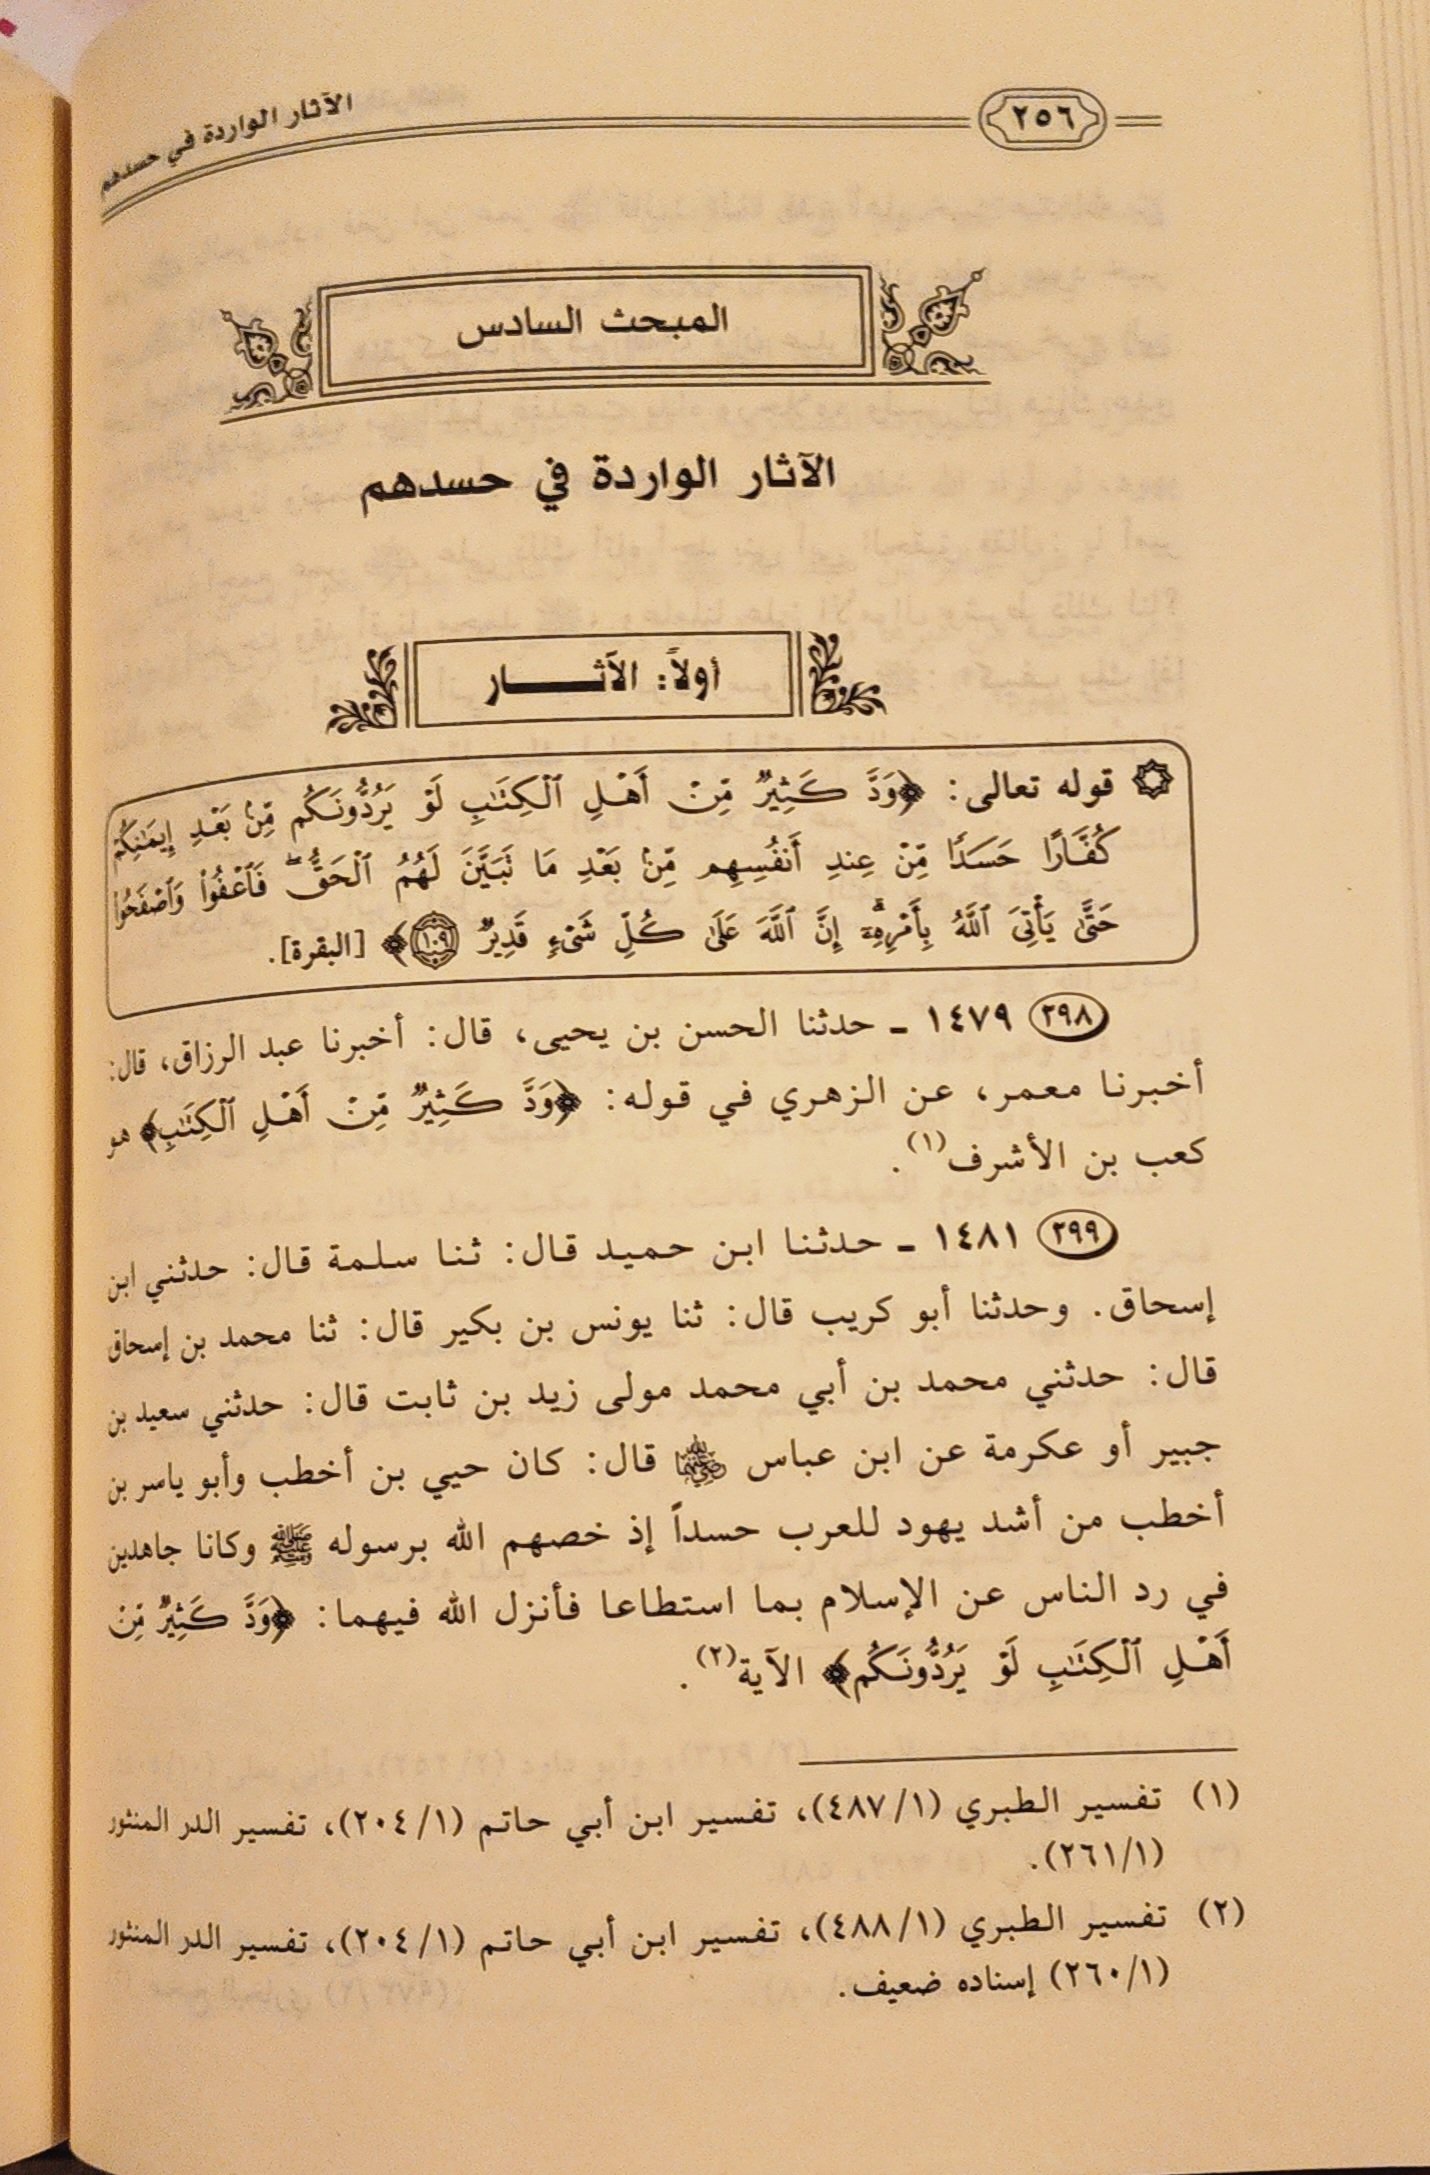 ٢٥٦
الآثار الواردة في حسدهم
المبحث السادس
الآثار الواردة في حسدهم
أولاً: الآثـــــار
قوله تعالى: ﴿وَدَّ كَثِيرٌ مِّنْ أَهْلِ ٱلْكِتَٰبِ لَوْ يَرُدُّونَكُم مِّنۢ بَعْدِ إِيمَٰنِكُمْ
كُفَّارًا حَسَدًا مِّنْ عِندِ أَنفُسِهِم مِّنۢ بَعْدِ مَا تَبَيَّنَ لَهُمُ ٱلْحَقُّ ۖ فَٱعْفُوا۟ وَٱصْفَحُوا۟
حَتَّىٰ يَأْتِىَ ٱللَّهُ بِأَمْرِهِۦٓ ۗ إِنَّ ٱللَّهَ عَلَىٰ كُلِّ شَىْءٍ قَدِيرٌ ١٠٩﴾ [البقرة].
٢٩٨ ١٤٧٩ ـ حدثنا الحسن بن يحيى، قال: أخبرنا عبد الرزاق، قال:
أخبرنا معمر، عن الزهري في قوله: ﴿وَدَّ كَثِيرٌ مِّنْ أَهْلِ ٱلْكِتَٰبِ﴾ هو
كعب بن الأشرف(١).
٢٩٩ ١٤٨١ ـ حدثنا ابن حميد قال: ثنا سلمة قال: حدثني ابن
إسحاق. وحدثنا أبو كريب قال: ثنا يونس بن بكير قال: ثنا محمد بن إسحاق
قال: حدثني محمد بن أبي محمد مولى زيد بن ثابت قال: حدثني سعيد بن
جبير أو عكرمة عن ابن عباس رضي الله عنهما قال: كان حيي بن أخطب وأبو ياسر بن
أخطب من أشد يهود للعرب حسداً إذ خصهم الله برسوله ﷺ وكانا جاهدين
في رد الناس عن الإسلام بما استطاعا فأنزل الله فيهما: ﴿وَدَّ كَثِيرٌ مِّنْ
أَهْلِ ٱلْكِتَٰبِ لَوْ يَرُدُّونَكُم﴾ الآية(٢).
(١) تفسير الطبري (٤٨٧/١)، تفسير ابن أبي حاتم (٢٠٤/١)، تفسير الدر المنثور
(٢٦١/١).
(٢) تفسير الطبري (٤٨٨/١)، تفسير ابن أبي حاتم (٢٠٤/١)، تفسير الدر المنثور
(٢٦٠/١) إسناده ضعيف.